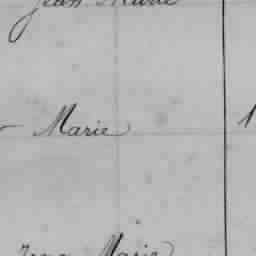 Jean Marie
Marie 1
Marie